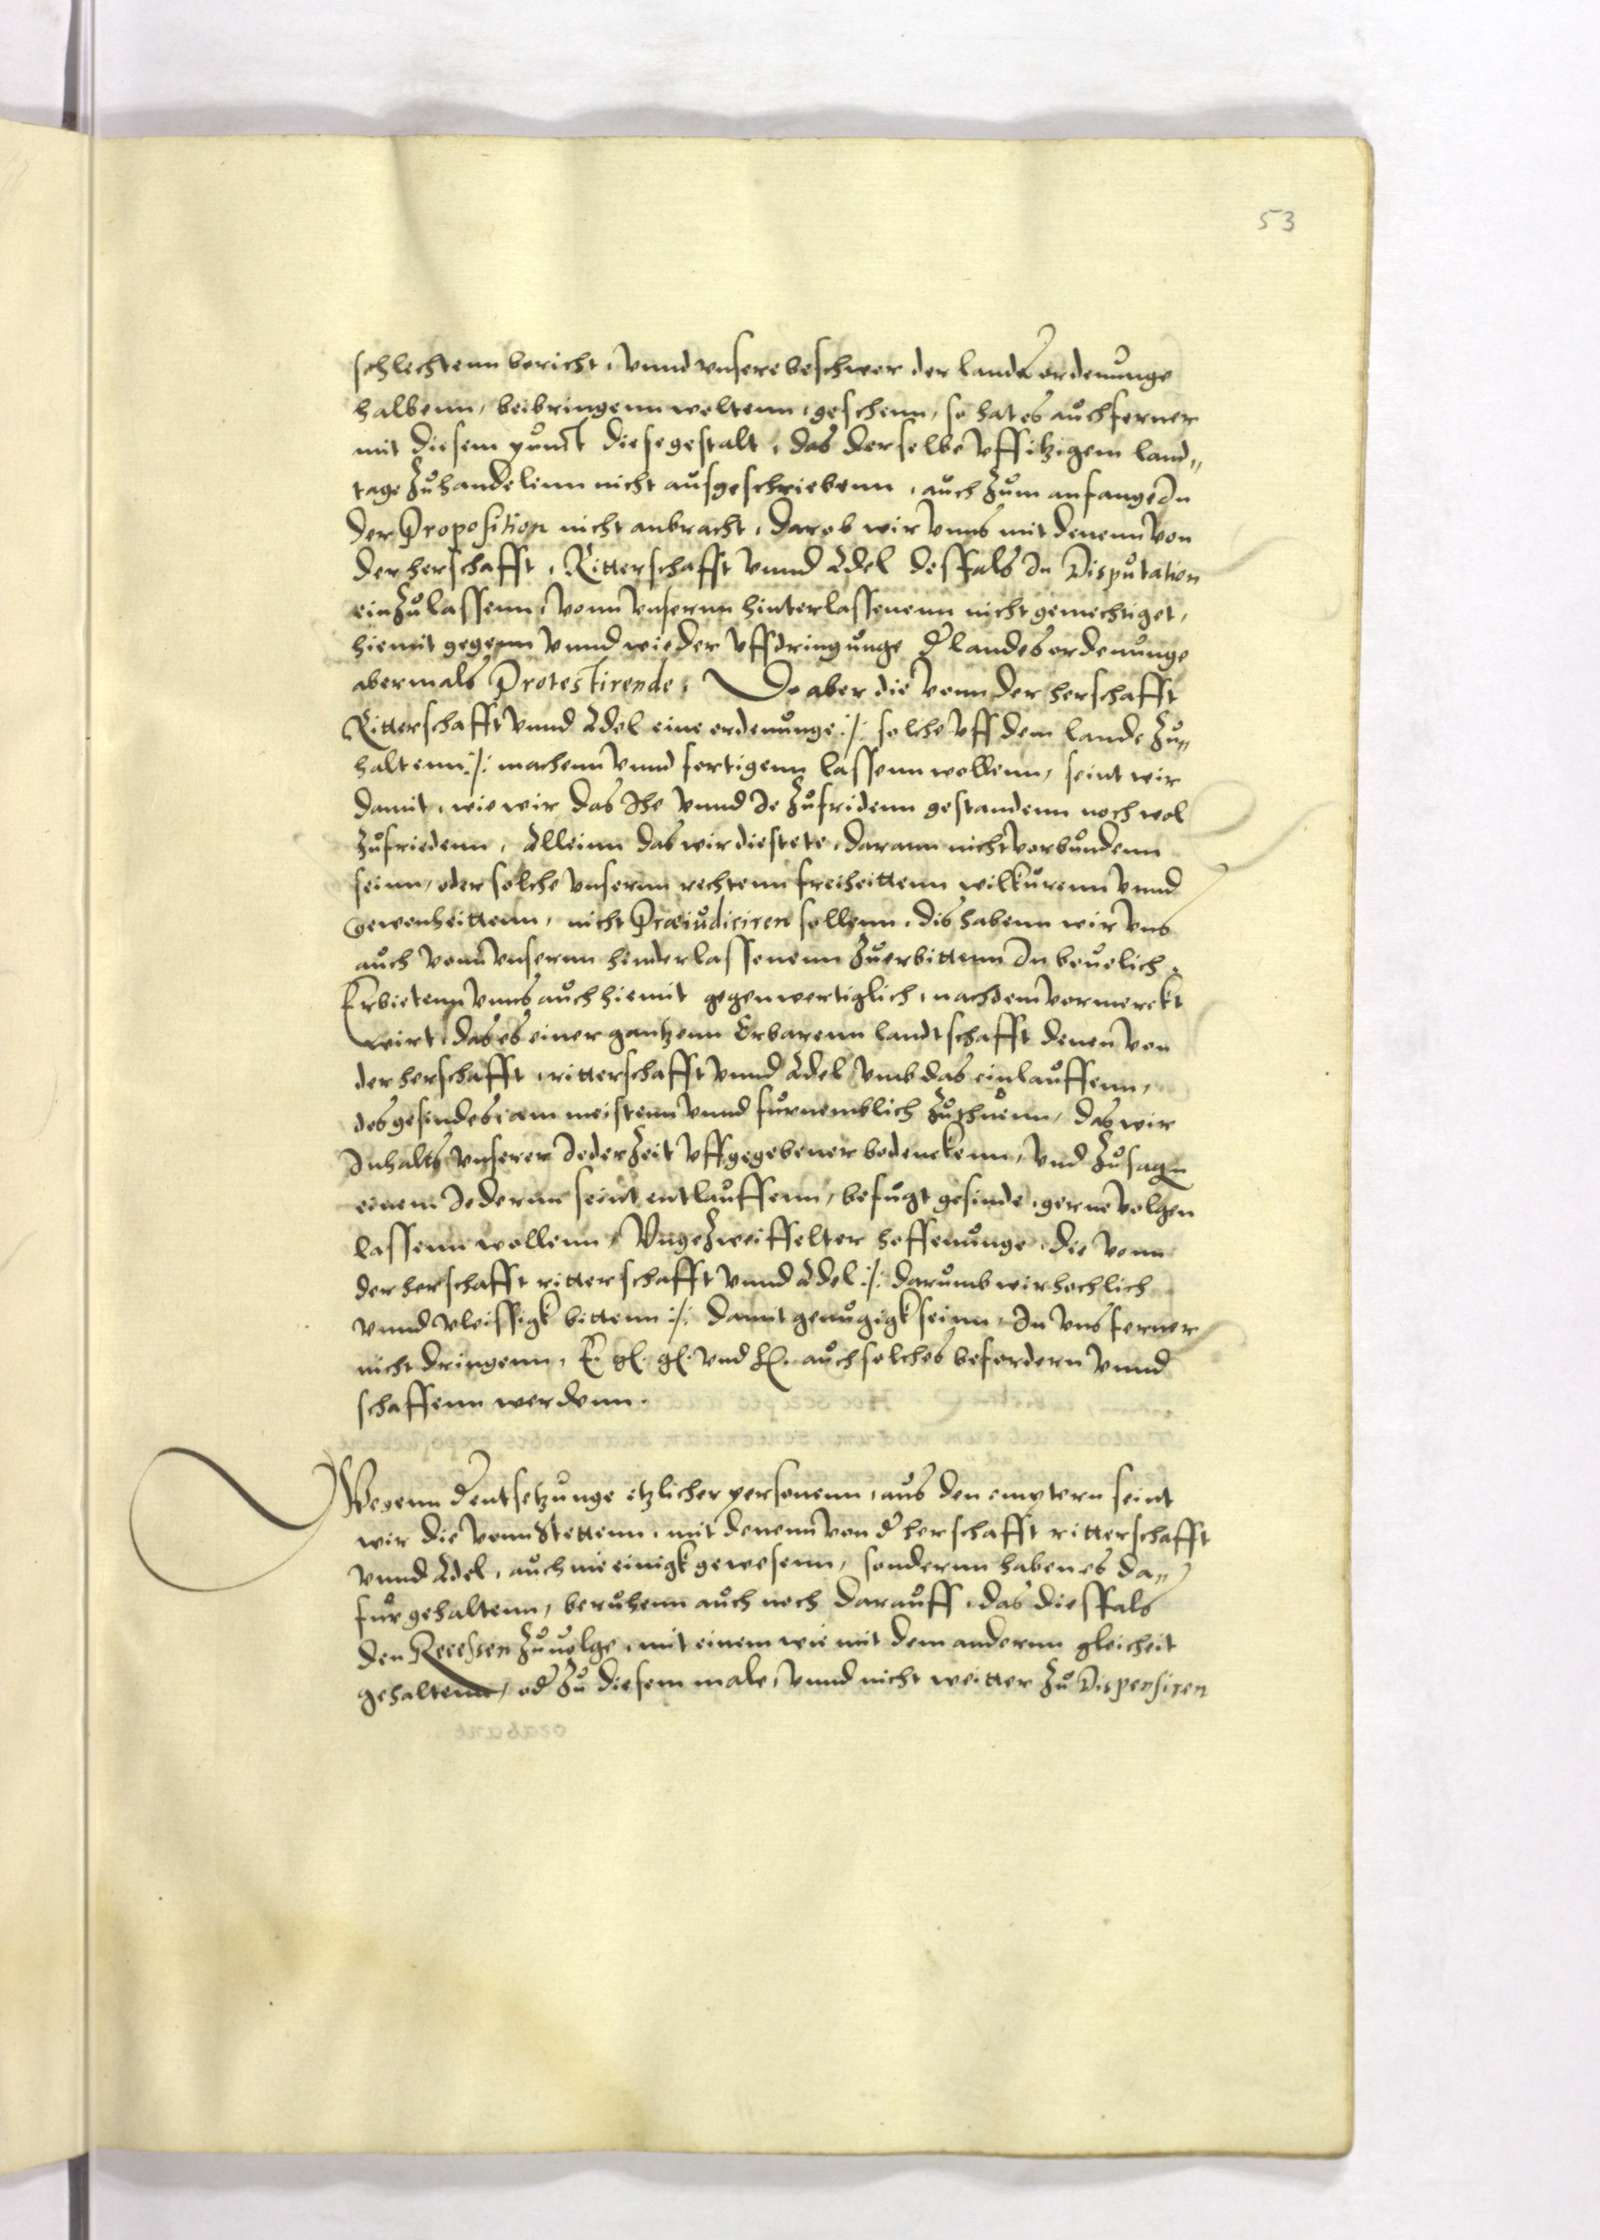 53
schlechtenn bericht, vnnd vnsere beschwer der landes ordenunge
halbenn, beibringenn woltenn, geschenn, so hat es auch ferner
mit diesem punct diese gestalt, das derselbe vff itzigem land„
tage zuhandelinn nicht ausgeschriebenn, auch zum anfange In
der Proposition nicht anbracht, darob wir vnns mit denenn von
der herschafft, Ritterschafft vnnd Adel desfals In Disputation
einzulassenn, vonn vnsernn hinterlassenenn nicht gemechtiget,
hiemit gegenn vnnd wieder vffdringunge d landes ordenunge
abermals Protestirende, Do aber die vonn der herschafft
Ritterschafft vnnd Adel eine ordenunge :/: solche vff dem lande zu„
haltenn :/: machenn vnnd fertigenn lassenn wollenn, seint wir
damit, wie wir das Ihe vnnd Ie zufridenn gestandenn noch wol
zufriedenn, Alleinn das wir diestete, darann nicht vorbundenn
seinn, oder solche vnsernn rechtenn freiheittenn wilkurenn vnnd
gewonheittenn, nicht Præiudiciren sollenn, dis habenn wir vns
auch vonn vnsernn hinderlassenenn zuerbittenn In beuelich,
Erbietenn vnns auch hiemit gegenwertiglich, nachdem vormerckt
wirt, das es einer gantzenn Erbarenn landtschafft denen von
der herschafft, ritterschafft vnnd Adel vmb das einlauffenn,
des gesindes, am meistenn vnnd furnemblich zuthuenn, das wir
Inhalts vnserer Iederzeit vffgegebener bedenckenn, vnd zusagn
einem Iedernn seint entlauffenn, befugt gesinde, gerne volgen
lassenn wollenn, Vngezweiffelter hoffenunge, die vonn
der herschafft ritterschafft vnnd Adel :/: darumb wir hochlich
vnnd vleissigk bittenn :/: damit genugigk seinn, In vns ferner
nicht dringenn, E. gl. gl. vnd h. auch solches befordern vnnd
schaffenn werdenn.
Wegenn d entsetzunge etzlicher personenn, aus den emptern seint
wir die vonn Stettenn, mit denenn von d herschafft ritterschafft
vnnd Adel, auch nie einigk gewesenn, sondernn haben es da„
fur gehaltenn, beruhenn auch noch darauff, das diesfals
den Recessen zuuolge, mit einem wie mit dem andernn gleicheit
gehaltenn, od zu diesem male, vnnd nicht weitter zu Dispensiren